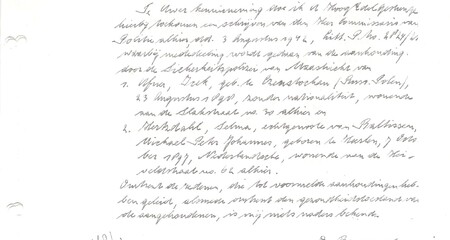 Te Uwer kennisneming doe ik U HoogEdelGestrenge
hierbij toekomen een schrijven van den Heer Commissaris van
Politie alhier, dd. 3 Augustus 1942, Litt. P. No.
waarbij mededeeling wordt gedaan van de aanhouding
door de Sicherheitspolizei van Maastricht van
1. Ofner, Icek, geb. te Czenstochau (Russ. Polen),
23 Augustus 1898, zonder nationaliteit, wonende
aan de straat no. 30 alhier en
2. Merkdahl, Selma, echtgenoote van Baltissen,
Michael Peter Johannes, geboren te Haaren, 7 Octo
ber 1897, Nederlandsche, wonende aan de
straat no. 62 alhier.
Omtrent de redenen, die tot voormelde aanhoudingen heb-
ben geleid, alsmede omtrent den gezondheidstoestand van
de aangehoudenen, is mij niets naders bekend.